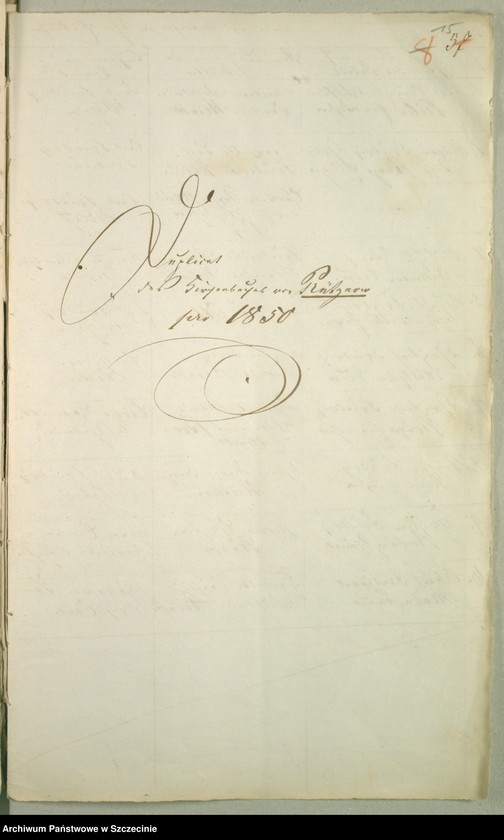 15
8
Duplicat
des Kirchenbuches von Rützow
pro 1850
Archiwum Państwowe w Szczecinie